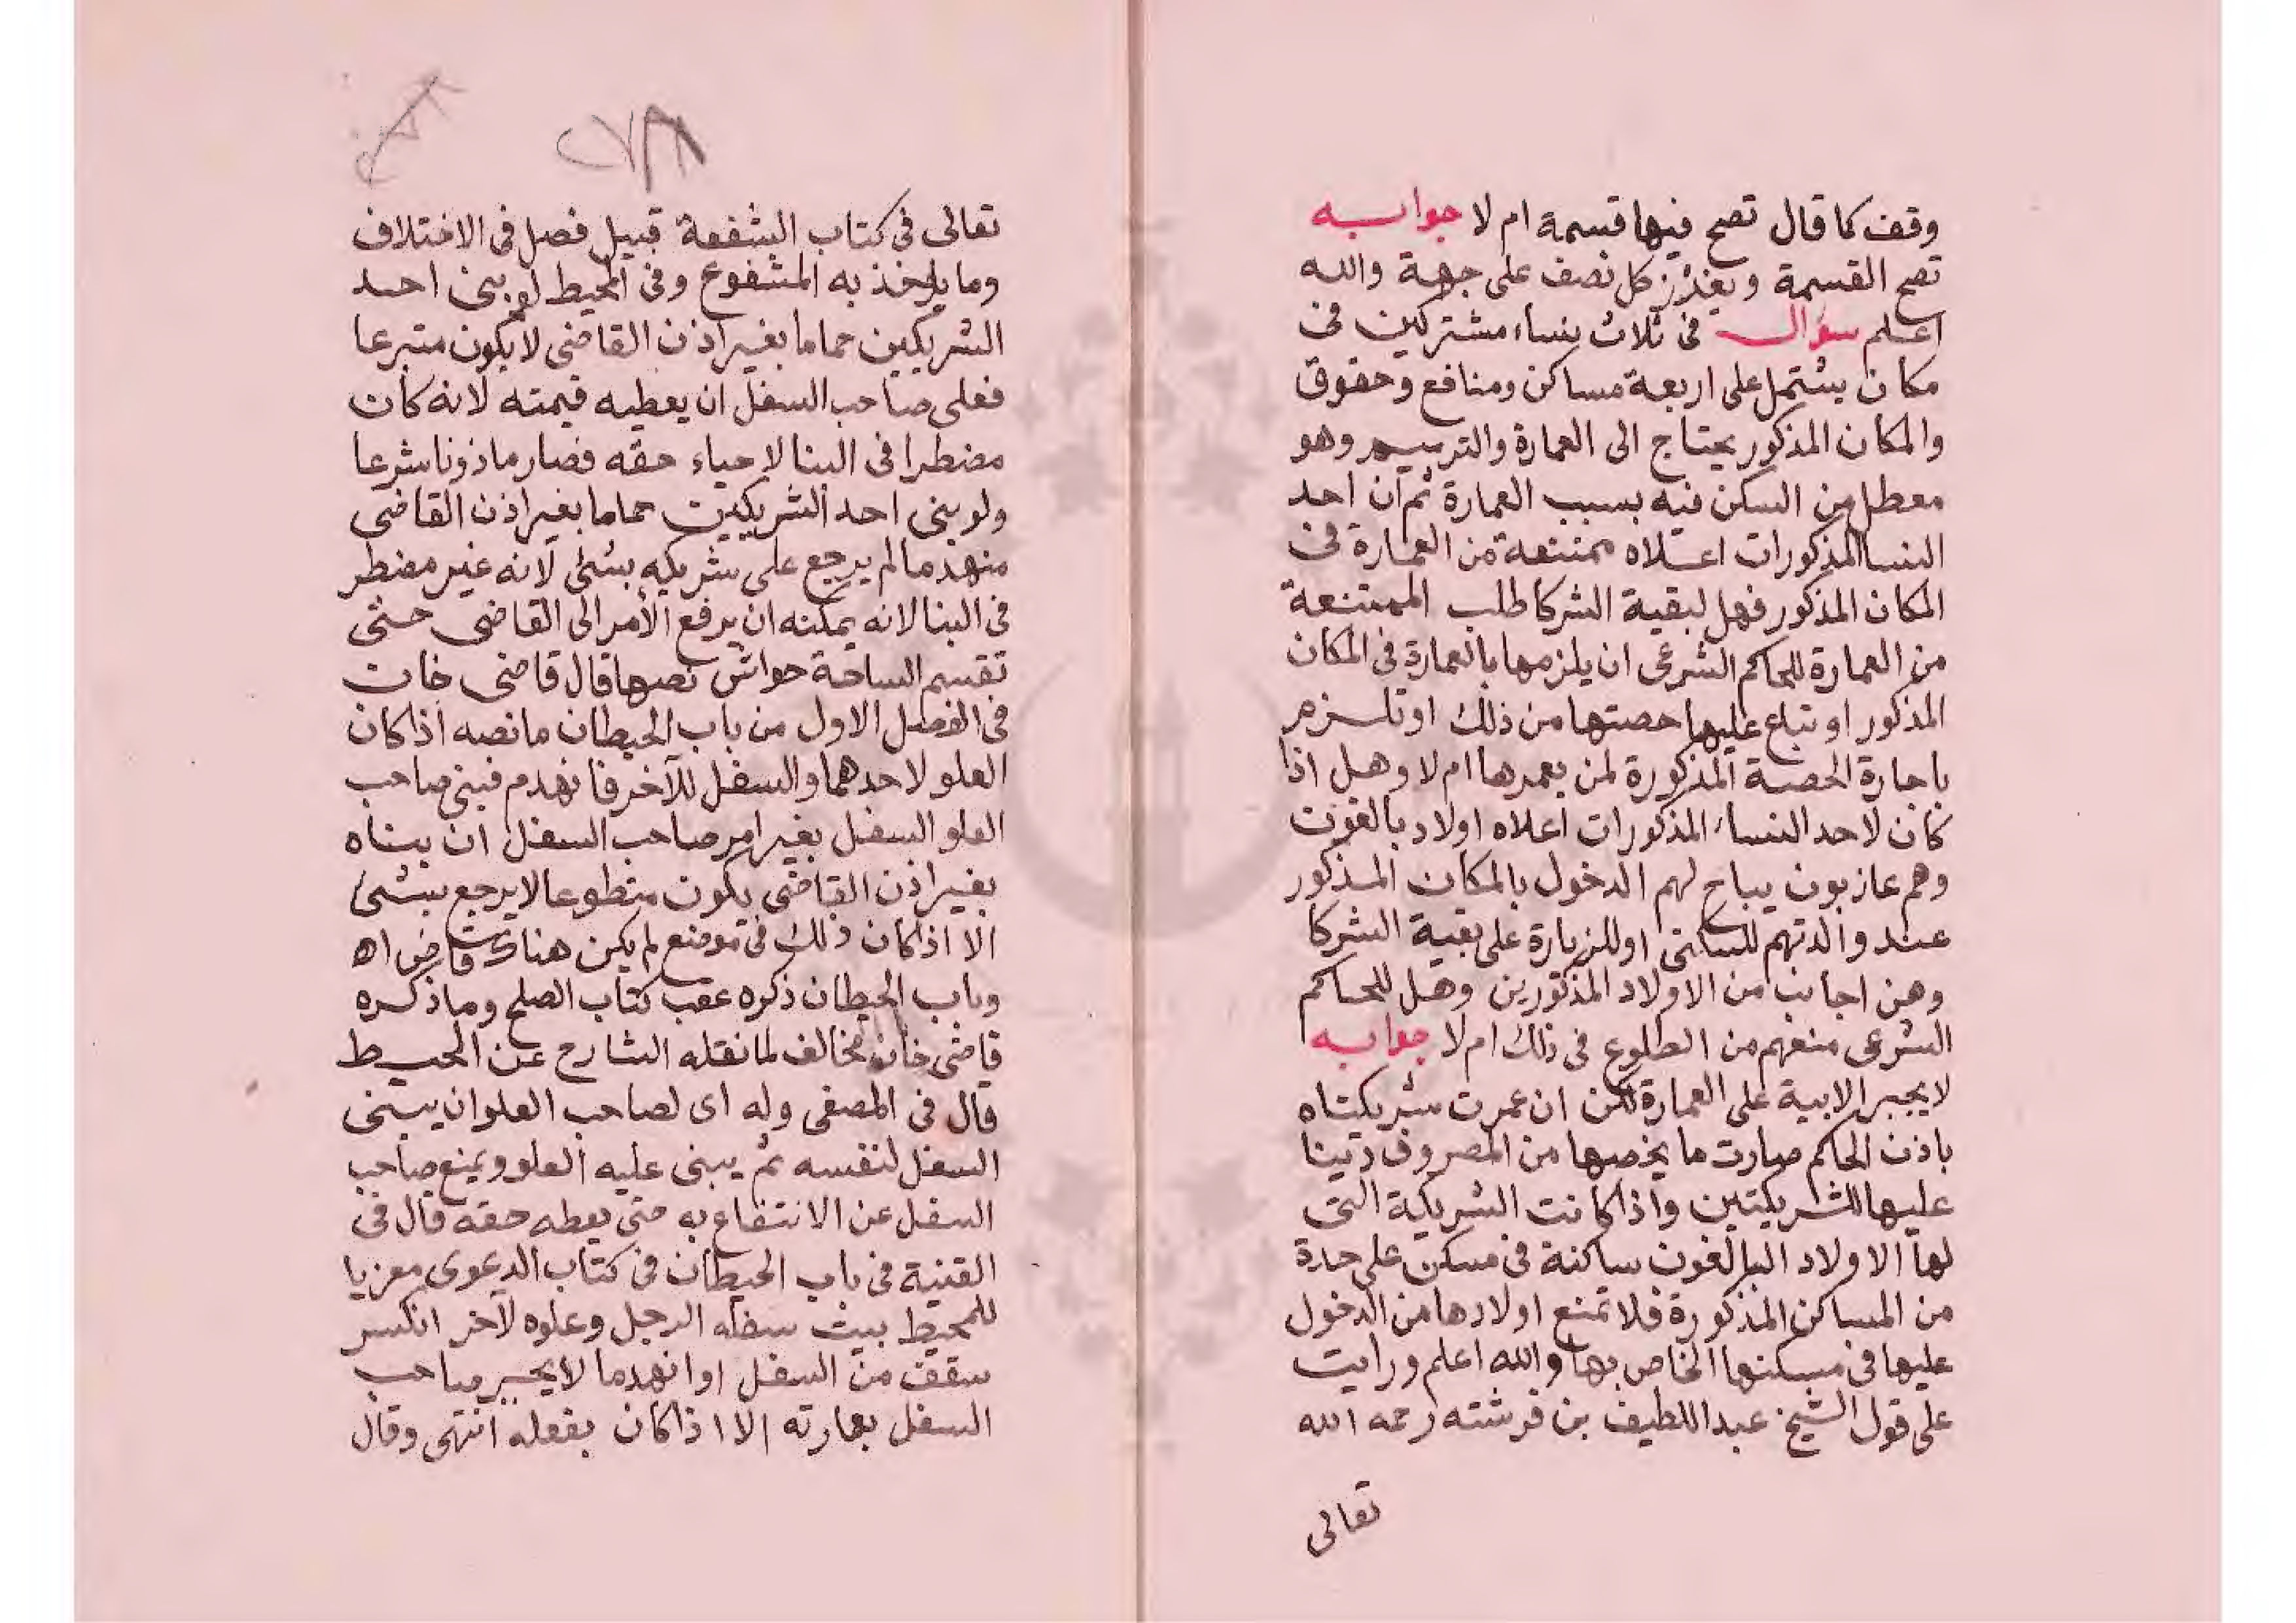 وقف كما قال تصح فيها قسمة ام لا جوابه
تصح القسمة ويفرز كل نصف على جهة والله
اعلم سؤال فى ثلاث نساء مشتركين فى
مكان يشتمل على اربعة مساكن ومنافع وحقوق
والمكان المذكور يحتاج الى العمارة والترميم وهو
معطل من السكن فيه بسبب العمارة ثم ان احد
النسا المذكورات اعلاه ممتنعة من العمارة فى
المكان المذكور فهل لبقية الشركا طلب الممتنعة
من العمارة للحاكم الشرعى ان يلزمها بالعمارة فى المكان
المذكور او تباع عليها حصتها من ذلك او تلزم
باجارة الحصة المذكورة لمن يعمرها ام لا وهل اذا
كان لاحد النساء المذكورات اعلاه اولاد بالغون
وهم عازبون يباح لهم الدخول بالمكان المذكور
عند والدتهم للسكنى او للزيارة على بقية الشركا
وهن اجانب من الاولاد المذكورين وهل للحاكم
الشرعى منعهم من الطلوع فى ذلك ام لا جوابه
لا يجبر الابية على العمارة لكن ان عمرت شريكتاه
باذن الحاكم صارت ما يخصها من المصروف دينا
عليها للشريكتين واذا كانت الشريكة التى
لها الاولاد البالغون ساكنة فى مسكن على حدة
من المساكن المذكورة فلا تمنع اولادها من الدخول
عليها فى مسكنها الخاص بها والله اعلم ورايت
على قول الشيخ عبد اللطيف بن فرشته رحمه الله
تعالى
٢٧٨
تعالى فى كتاب الشفعة قبيل فصل فى الاختلاف
وما يؤخذ به المشفوع وفى المحيط لو بنى احد
الشريكين حماما بغير اذن القاضى لا يكون متبرعا
فعلى صاحب السفل ان يعطيه قيمته لانه كان
مضطرا فى البنا لاحياء حقه فصار ماذونا شرعا
ولو بنى احد الشريكين حماما بغير اذن القاضى
منهدما لم يرجع على شريكه بشئ لانه غير مضطر
فى البنا لانه يمكنه ان يرفع الأمر الى القاضى حتى
تقسم الساحة حواش نصها قال قاضى خان
فى الفصل الاول من باب الحيطان ما نصه اذا كان
العلو لاحدهما والسفل للآخر فانهدم فبنى صاحب
العلو السفل بغير امر صاحب السفل ان بناه
بغير اذن القاضى يكون متطوعا لا يرجع بشئ
الا اذا كان ذلك فى موضع لم يكن هناك قاض اه
وباب الحيطان ذكره عقب كتاب الصلح وما ذكره
قاضى خان مخالف لما نقله الشارح عن المحيط
قال فى المصفى وله اى لصاحب العلو ان يبنى
السفل لنفسه ثم يبنى عليه العلو ويمنع صاحب
السفل عن الانتفاع به حتى يعطه حقه قال فى
القنية فى باب الحيطان فى كتاب الدعوى معزيا
للمحيط بيت سفله لرجل وعلوه لآخر انكسر
سقف من السفل او انهدما لا يجبر صاحب
السفل بعمارته الا اذا كان بفعله انتهى وقال